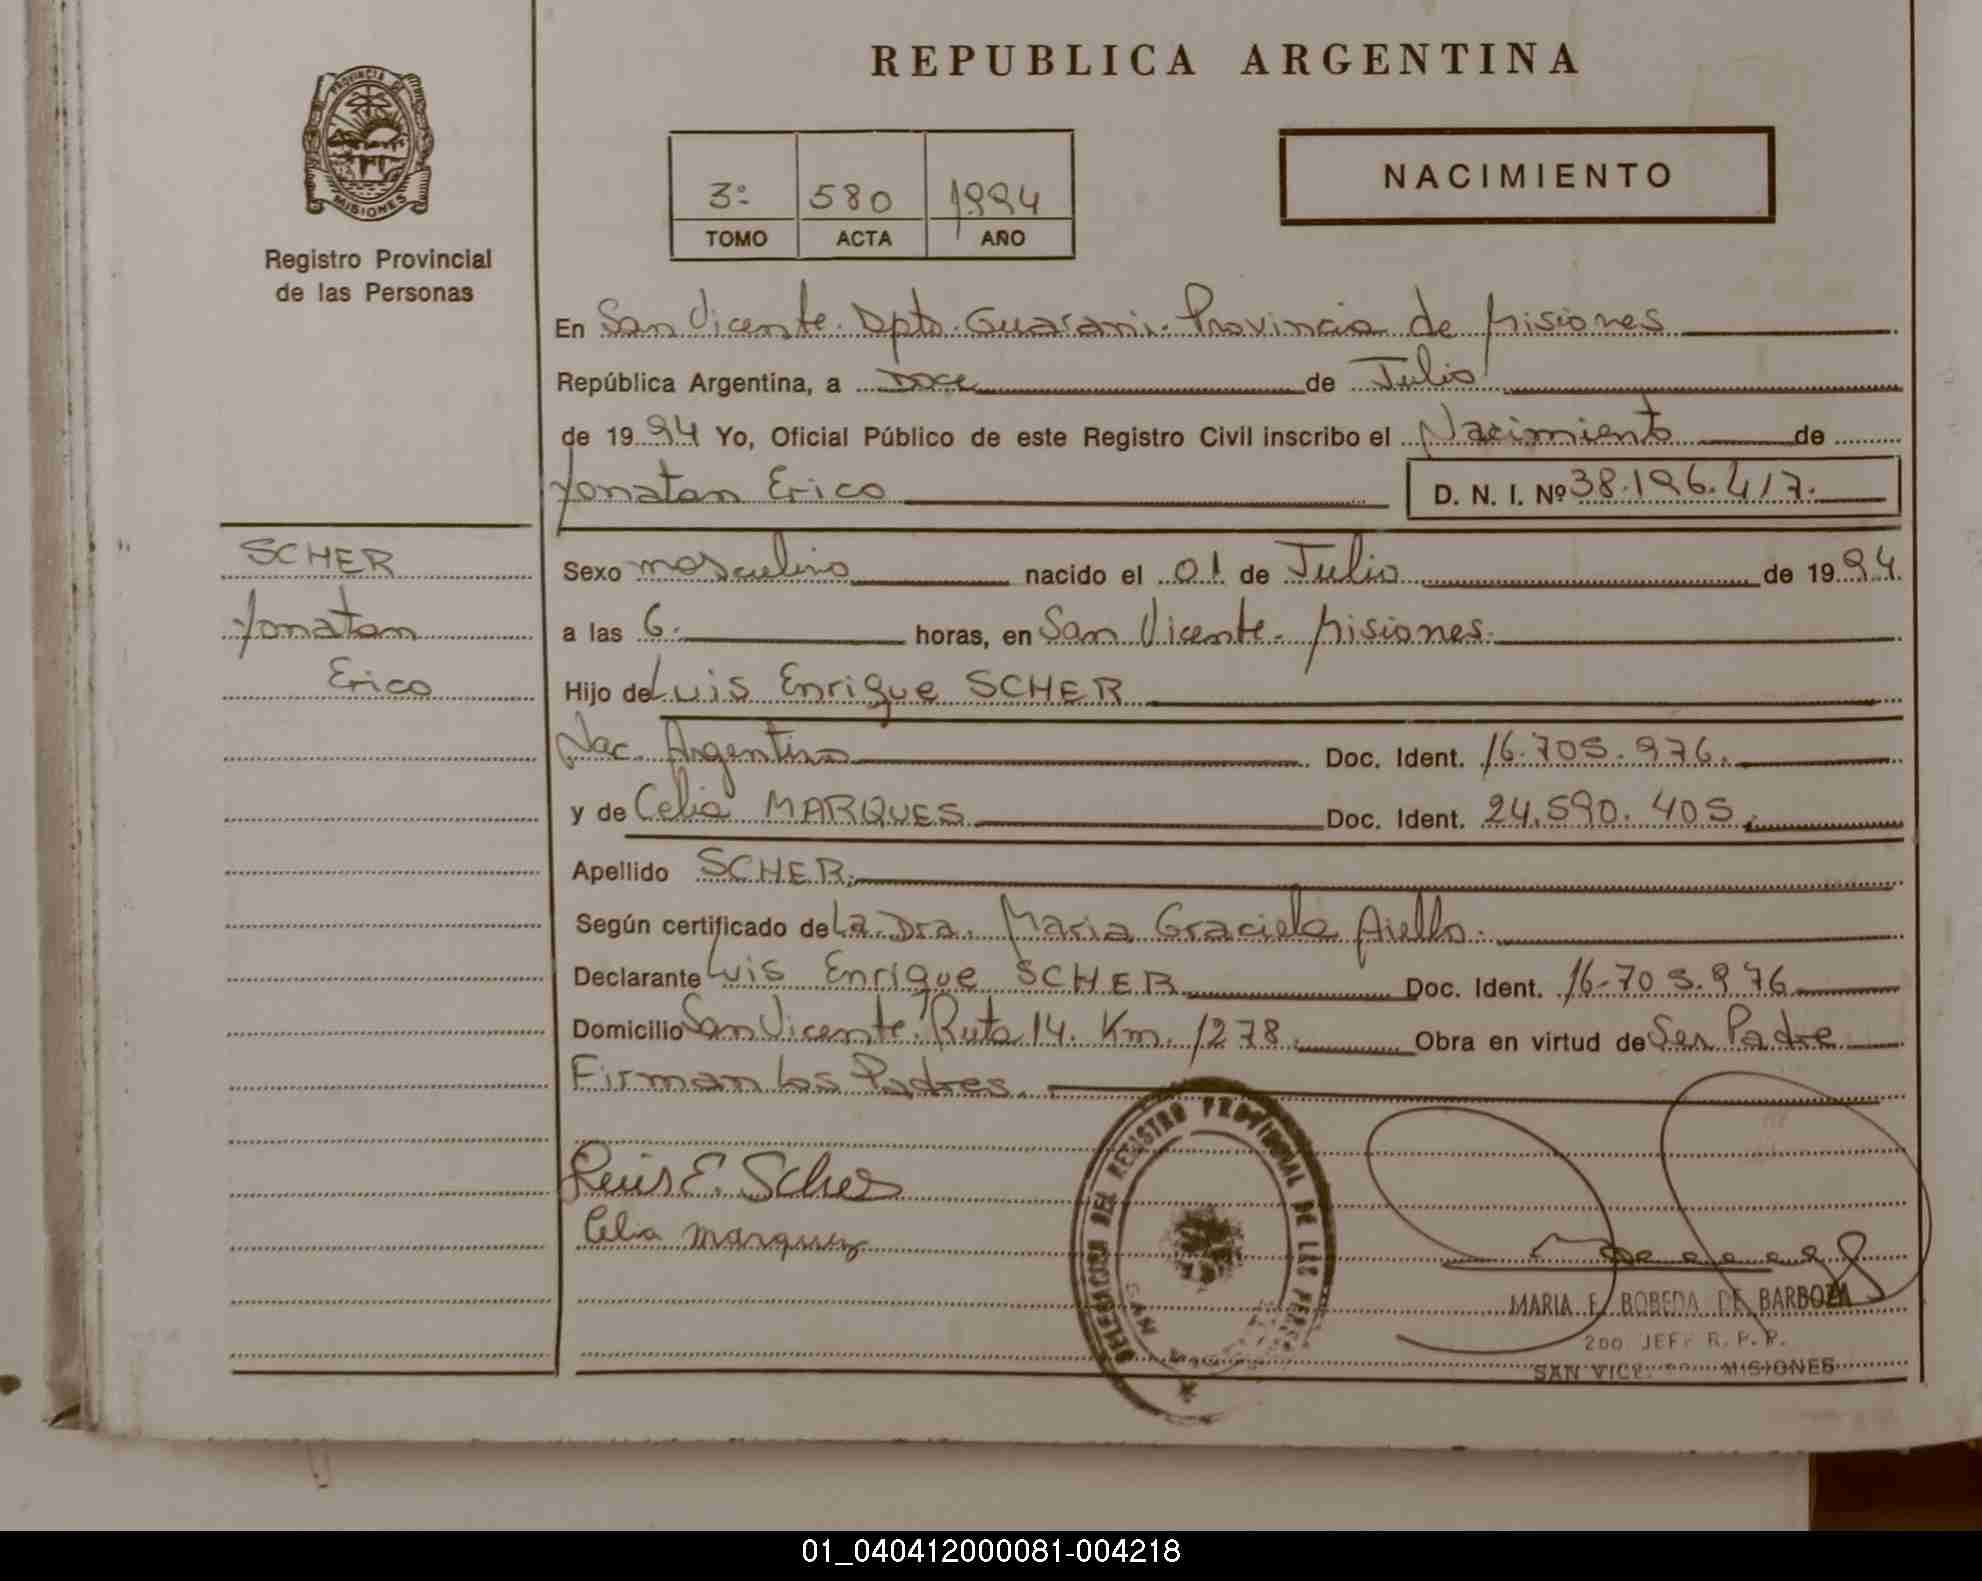 REPUBLICA ARGENTINA
PROVINCIA DE
MISIONES
Registro Provincial
de las Personas
3º 580 1994
TOMO ACTA AÑO
NACIMIENTO
En San Vicente. Dpto. Guarani. Provincia de Misiones
República Argentina, a Doce de Julio
de 1994 Yo, Oficial Público de este Registro Civil inscribo el Nacimiento de
Yonatan Erico D. N. I. Nº 38.196.417.
SCHER
Yonatan
Erico
Sexo masculino nacido el 01 de Julio de 1994.
a las 6. horas, en San Vicente. Misiones.
Hijo de Luis Enrique SCHER
Nac. Argentino Doc. Ident. 16.705.976.
y de Celia MARQUES Doc. Ident. 24.590.405.
Apellido SCHER.
Según certificado de La Dra. Maria Graciela Aiello.
Declarante Luis Enrique SCHER Doc. Ident. 16.705.976
Domicilio San Vicente. Ruta 14. Km. 1278. Obra en virtud de Ser Padre
Firman los Padres.
Luis E. Scher
Celia marquez
DELEGACION DEL REGISTRO PROVINCIAL DE LAS
SAN
MARIA E. BOBEDA DE BARBOZA
2do JEFE R. P. P.
SAN MISIONES
01_040412000081-004218